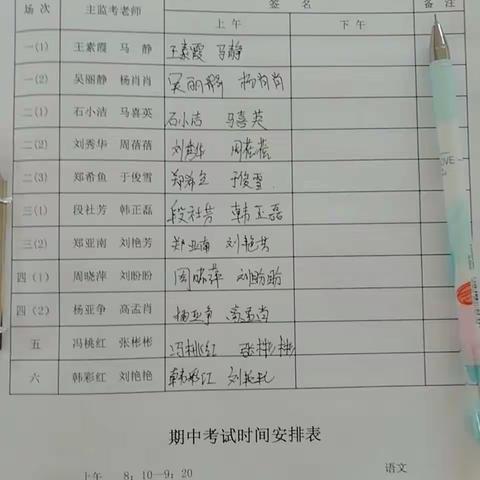 场 次 主监考老师 签 名 备 注
上 午 下 午
一(1) 王素霞 马 静 王素霞 马静
一(2) 吴丽静 杨肖肖 吴丽静 杨肖肖
二(1) 石小洁 马喜英 石小洁 马喜英
二(2) 刘秀华 周蓓蓓 刘秀华 周蓓蓓
二(3) 郑希鱼 于俊雪 郑希鱼 于俊雪
三(1) 段社芳 韩正磊 段社芳 韩正磊
三(2) 郑亚南 刘艳芳 郑亚南 刘艳芳
四(1) 周晓萍 刘盼盼 周晓萍 刘盼盼
四(2) 杨亚争 高孟肖 杨亚争 高孟肖
五 冯桃红 张彬彬 冯桃红 张彬彬
六 韩彩红 刘艳艳 韩彩红 刘艳艳
期中考试时间安排表
上午 8：10—9：20 语文